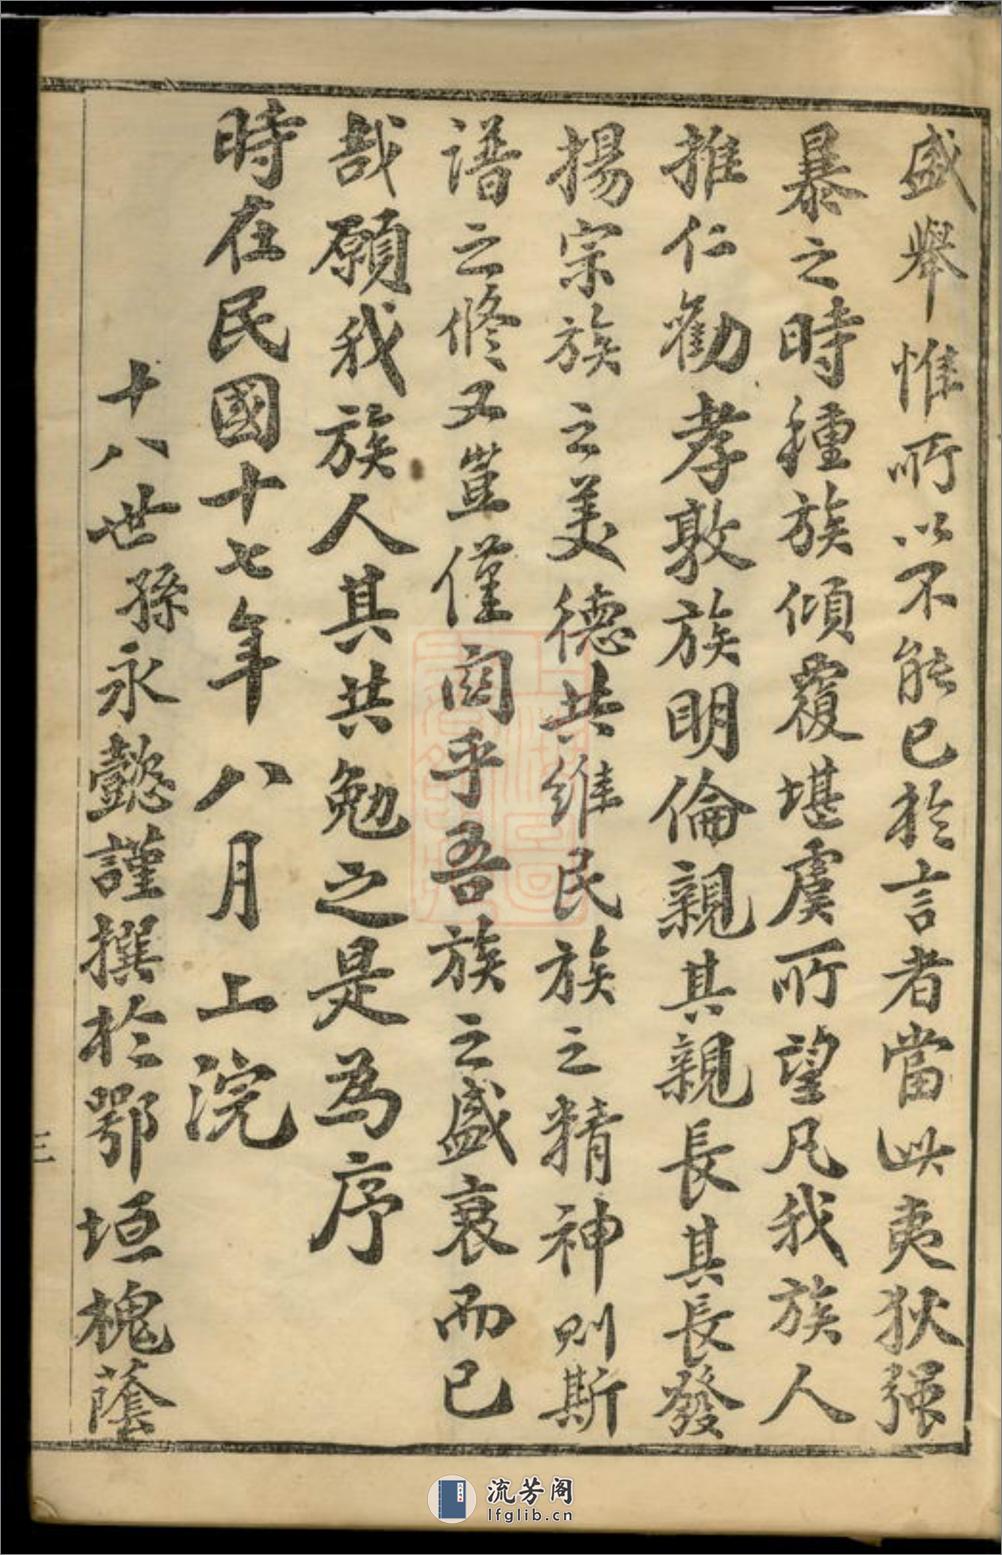 盛舉惟所以不能已於言者當此夷狄强
暴之時種族傾覆堪虞所望凡我族人
推仁勸孝敦族明倫親其親長其長發
揚宗族之美德共維民族之精神則斯
譜之修又豈僅関乎吾族之盛衰而已
哉願我族人其共勉之是為序
時在民國十七年八月上浣
十八世孫永懿謹撰於鄂垣槐蔭
三
流芳阁
lfglib.cn